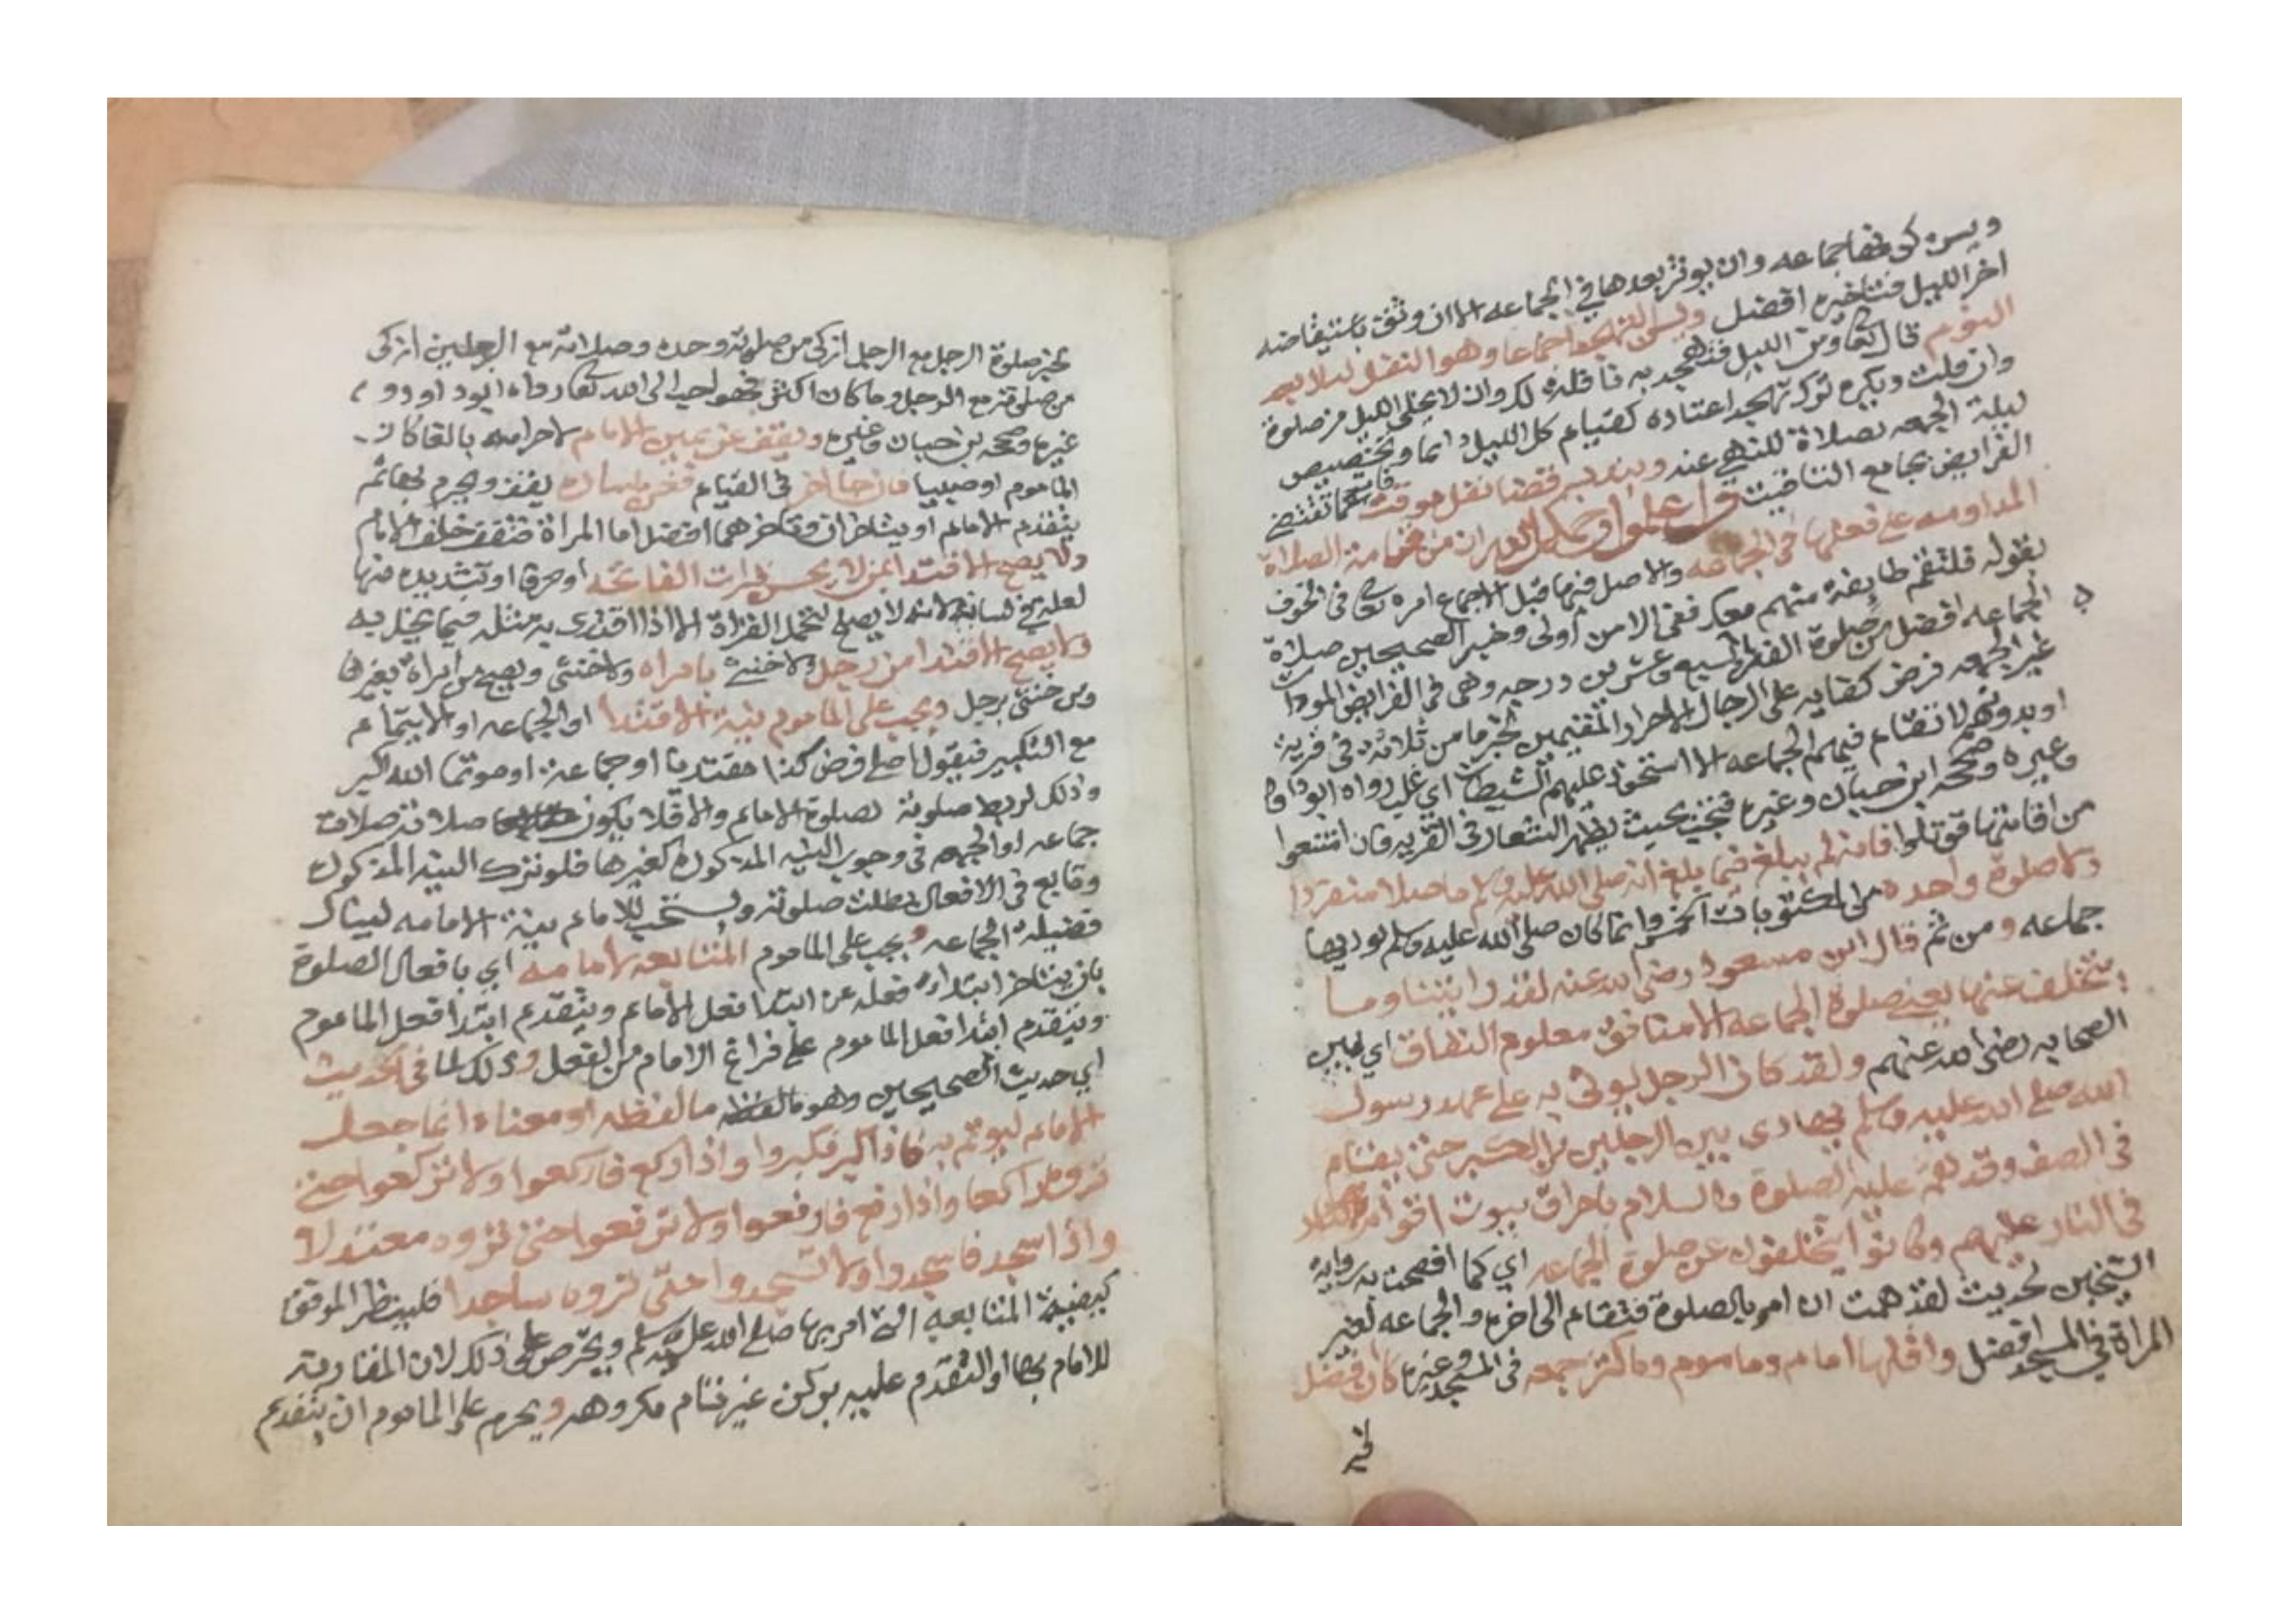 ويسن كونها جماعه وان يوتر بعدها في الجماعه الا ان وثق باستيقاضه
اخر الليل فتاخيره افضل ويسن التهجد اجماعا وهو النفل ليلا بعد
النوم قال تعا ومن الليل فتهجد به نافلة لك وان لا يخلي الليل من صلوة
وان قلت ويكره ترك تهجد اعتاده كقيام كل الليل دائما وتخصيص
ليلة الجمعه بصلاة للنهي عنه ويندب قضا نفل موقت كما تقضى
الفرايض بجامع التاقيت واعلموا ان من اقامة الصلاة
المداومه على فعلها في الجماعه والاصل فيها قبل الاجماع امره تعا في الخوف
بقوله فلتقم طايفة منهم معك ففي الامن اولى وخبر الصحيحين صلاة
الجماعه افضل من صلوة الفذ بسبع وعشرين درجه وهي في الفرايض المودات
غير الجمعه فرض كفايه على الرجال الاحرار المقيمين لخبر ما من ثلاثة في قرية
او بدو لا تقام فيهم الجماعه الا استحوذ عليهم الشيطان اي غلب رواه ابوداود
وغيره وصححه ابن حبان وغيره فتجب بحيث يظهر الشعار في القريه فان امتنعوا
من اقامتها قوتلوا فانه لم يبلغ فيما بلغ انه صلى الله عليه وسلم ما صلا منفردا
ولا صلوة واحده من المكتوبات الخمس وانما كان صلى الله عليه وسلم يوديها
جماعه ومن ثم قال ابن مسعود رضي الله عنه لقد رايتنا وما
يتخلف عنها يعني صلوة الجماعه الا منافق معلوم النفاق اي بين
الصحابه رضي الله عنهم ولقد كان الرجل يوتى به على عهد رسول
الله صلى الله عليه وسلم يهادى بين الرجلين من الكبر حتى يقام
في الصف وقد هم عليه الصلوة والسلام باحراق بيوت اقوام
في النار عليهم وكانوا يتخلفون عن صلوة الجماعه اي كما افصحت به روايه
الشيخين لحديث لقد هممت ان امر بالصلوة فتقام الى اخره والجماعه لغير
المراة في المسجد افضل واقلها امام وماموم وما كثر جمعه في المسجد وغيره كان افضل
لخبر
لخبر صلوة الرجل مع الرجل ازكى من صلوته وحده وصلاته مع الرجلين ازكى
من صلوته مع الرجل وما كان اكثر فهو احب الى الله تعا رواه ابوداوود
غيره وصححه بن حبان وغيره ويقف عن يمين الامام لاحرامه بالغا كان
الماموم او صبيا فان جا اخر في القيام فعن يساره يقف ويحرم ثم
يتقدم الامام او يتاخران وتاخرهما افضل اما المراة فتقف خلف الامام
ولا يصح الاقتدا بمن لا يحسن قرات الفاتحه او حرفا او تشديده منها
لعلة في لسانه لانه لا يصلح لتحمل القراة الا اذا اقتدى به مثله فيما يخل به
ولا يصح الاقتدا من رجل ولا خنثى بامراه ولا خنثى ويصح من امراة بغيرها
ومن خنثى برجل ويجب على الماموم نية الاقتدا او الجماعه او الايتمام
مع التكبير فيقول اصلي فرض كذا مقتديا او جماعة او موتما الله اكبر
وذلك لربط صلوته بصلوة الامام والا فلا يكون صلاته صلاة
جماعه او الجمعه في وجوب النيه المذكوره كغيرها فلو ترك النيه المذكوره
وتابع في الافعال بطلت صلوته ويستحب للامام نية الامامه لينال
فضيلة الجماعه ويجب على الماموم المتابعه لامامه اي بافعال الصلوة
بان يتاخر ابتداء فعله عن ابتدا فعل الامام ويتقدم ابتدا فعل الماموم
ويتقدم ابتدا فعل الماموم على فراغ الامام من الفعل وذلك لما في الحديث
اي حديث الصحيحين وهو ما لفظه ما لفظه او معناه انما جعل
الامام ليوتم به فاذا كبر فكبروا واذا ركع فاركعوا ولا تركعوا حتى
تروه راكعا واذا رفع فارفعوا ولا ترفعوا حتى تروه معتدلا
واذا سجد فاسجدوا ولا تسجدوا حتى تروه ساجدا فلينظر الموفق
كيفية المتابعه التي امر بها صلى الله عليه وسلم ويحرص على ذلك لان المقارنة
للامام بها او التقدم عليه بركن غير تام مكروهه ويحرم على الماموم ان يتقدم